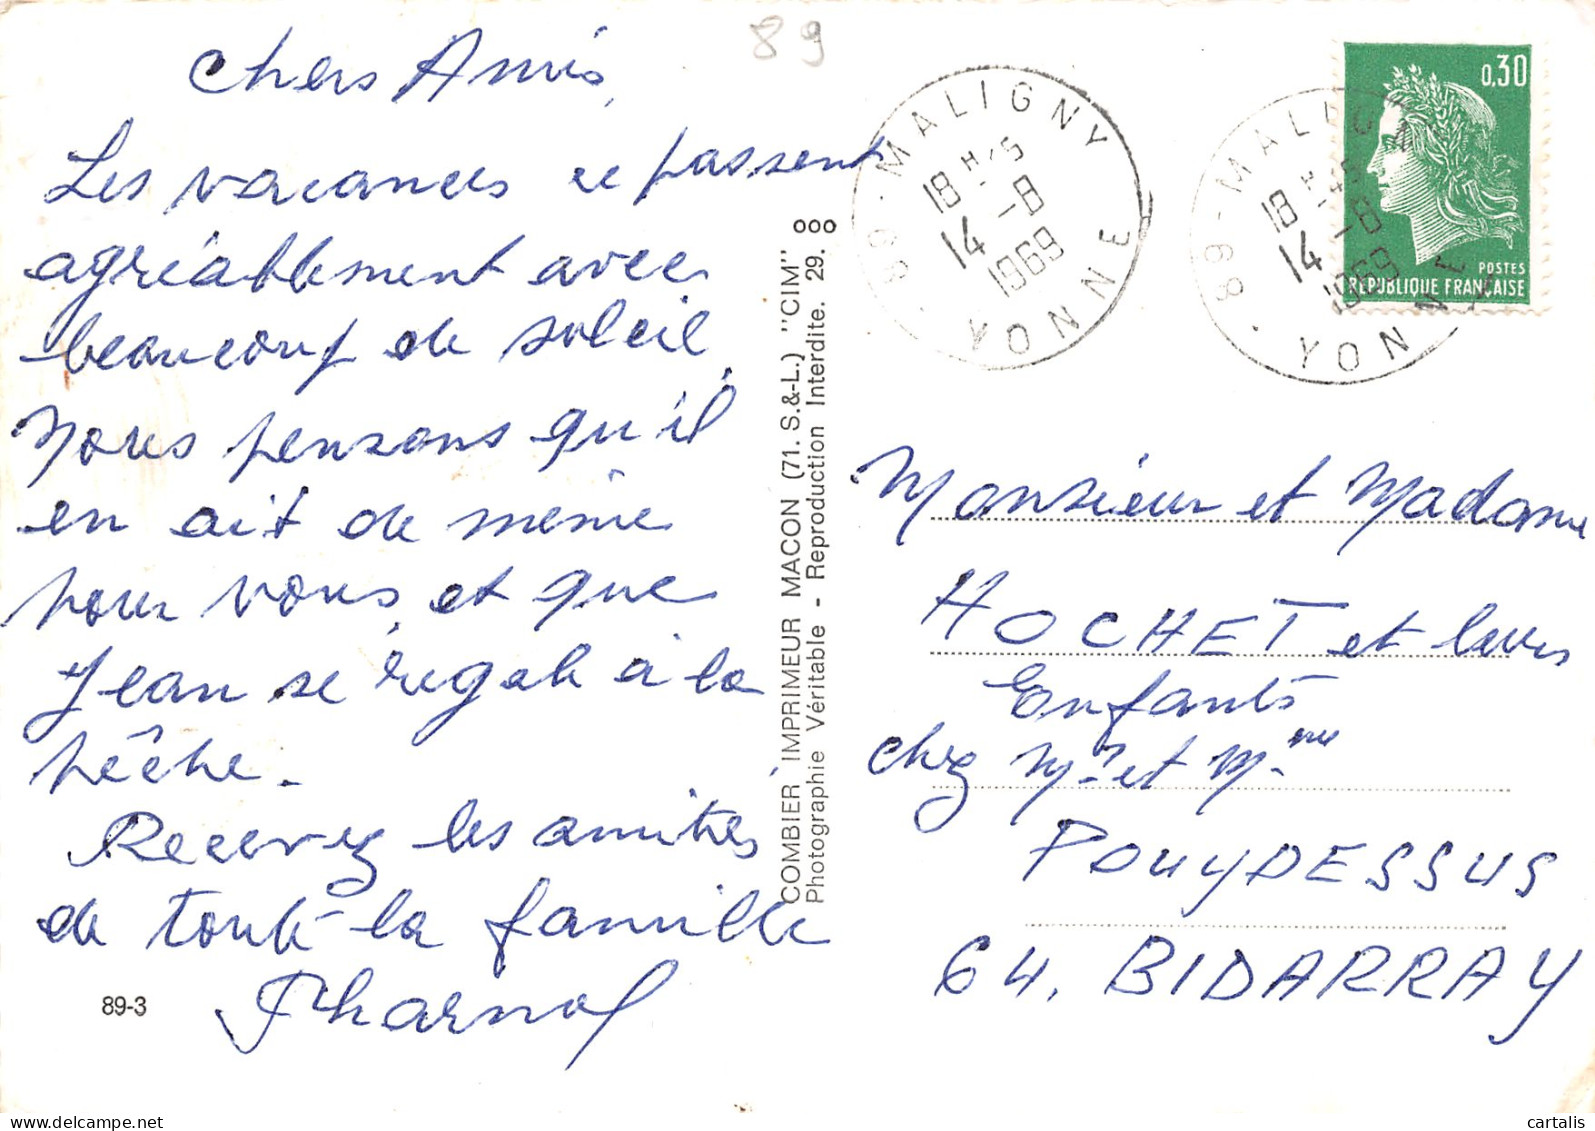 89
Chers Amis,
Les vacances se passent
agréablement avec
beaucoup de soleil.
Nous pensons qu'il
en ait de même
pour vous, et que
Jean se régale à la
pêche.
Recevez les amitiés
de toute la famille
Pharnol
89-3
COMBIER IMPRIMEUR MACON (71. S.&-L.) "CIM"
Photographie Véritable - Reproduction Interdite. 29. ooo
89-MALIGNY
18 H 45
14 -8
1969
YONNE
89-MALIGNY
18 H 45
14 -8
1969
YONNE
0,30
POSTES
RÉPUBLIQUE FRANÇAISE
Monsieur et Madame
HOCHET et leurs
Enfants
chez Mr et Mme
POUYDESSUS
64. BIDARRAY
delcampe.net
cartalis